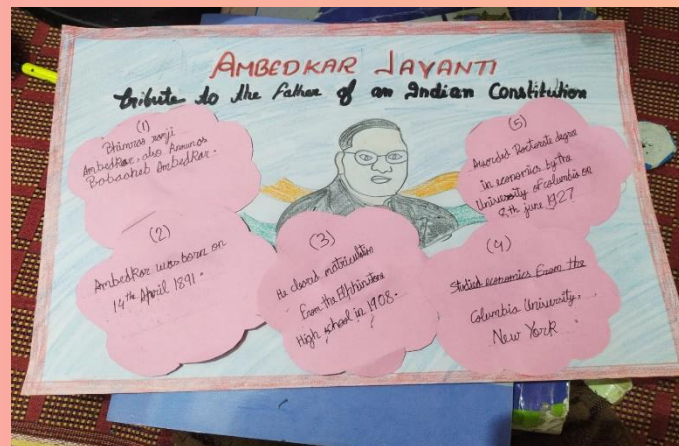 AMBEDKAR JAYANTI
Tribute to the Father of an Indian Constitution
(1)
Bhimrao ramji
Ambedkar, also Annunos
Babasaheb Ambedkar.
(2)
Ambedkar was born on
14th April 1891.
(3)
He cleared matriculation
From the Elphinstone
High school in 1908.
(4)
Studied economics From the
Columbia University,
New York
(5)
Awarded Doctorate degree
in economics by the
University of columbia on
8th june 1927